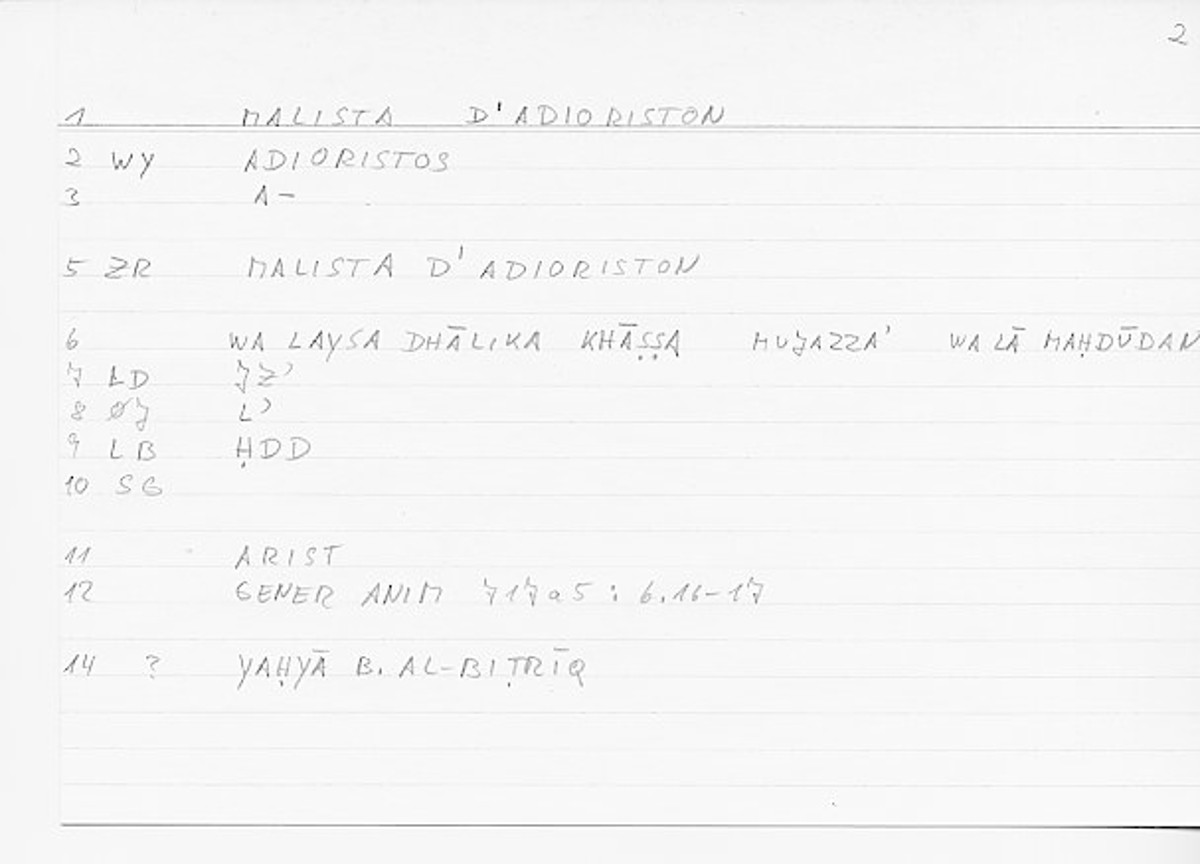 2
1 MALISTA D'ADIORISTON
2 WY ADIORISTOS
3 A-
5 ZR MALISTA D'ADIORISTON
6 WA LAYSA DHĀLIKA KHĀṢṢA MUJAZZA' WA LĀ MAḤDŪDAN
7 LD JZ'
8 ØJ L'
9 LB ḤDD
10 SG
11 ARIST
12 GENER ANIM 717a5 : 6.16-17
14 ? YAḤYĀ B. AL-BIṬRĪQ